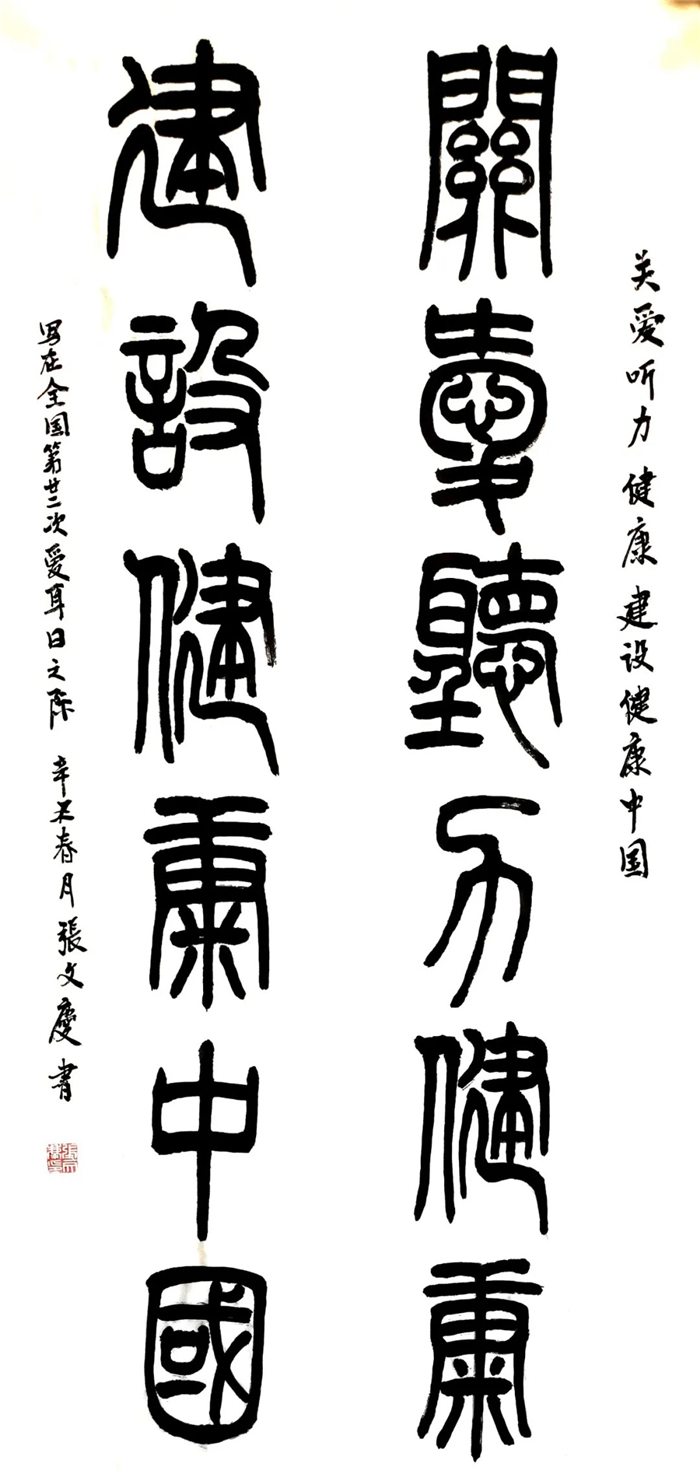 关爱听力健康建设健康中国
關愛聽力健康
建設健康中國
写在全国第廿二次爱耳日之际 辛丑春月張文慶書